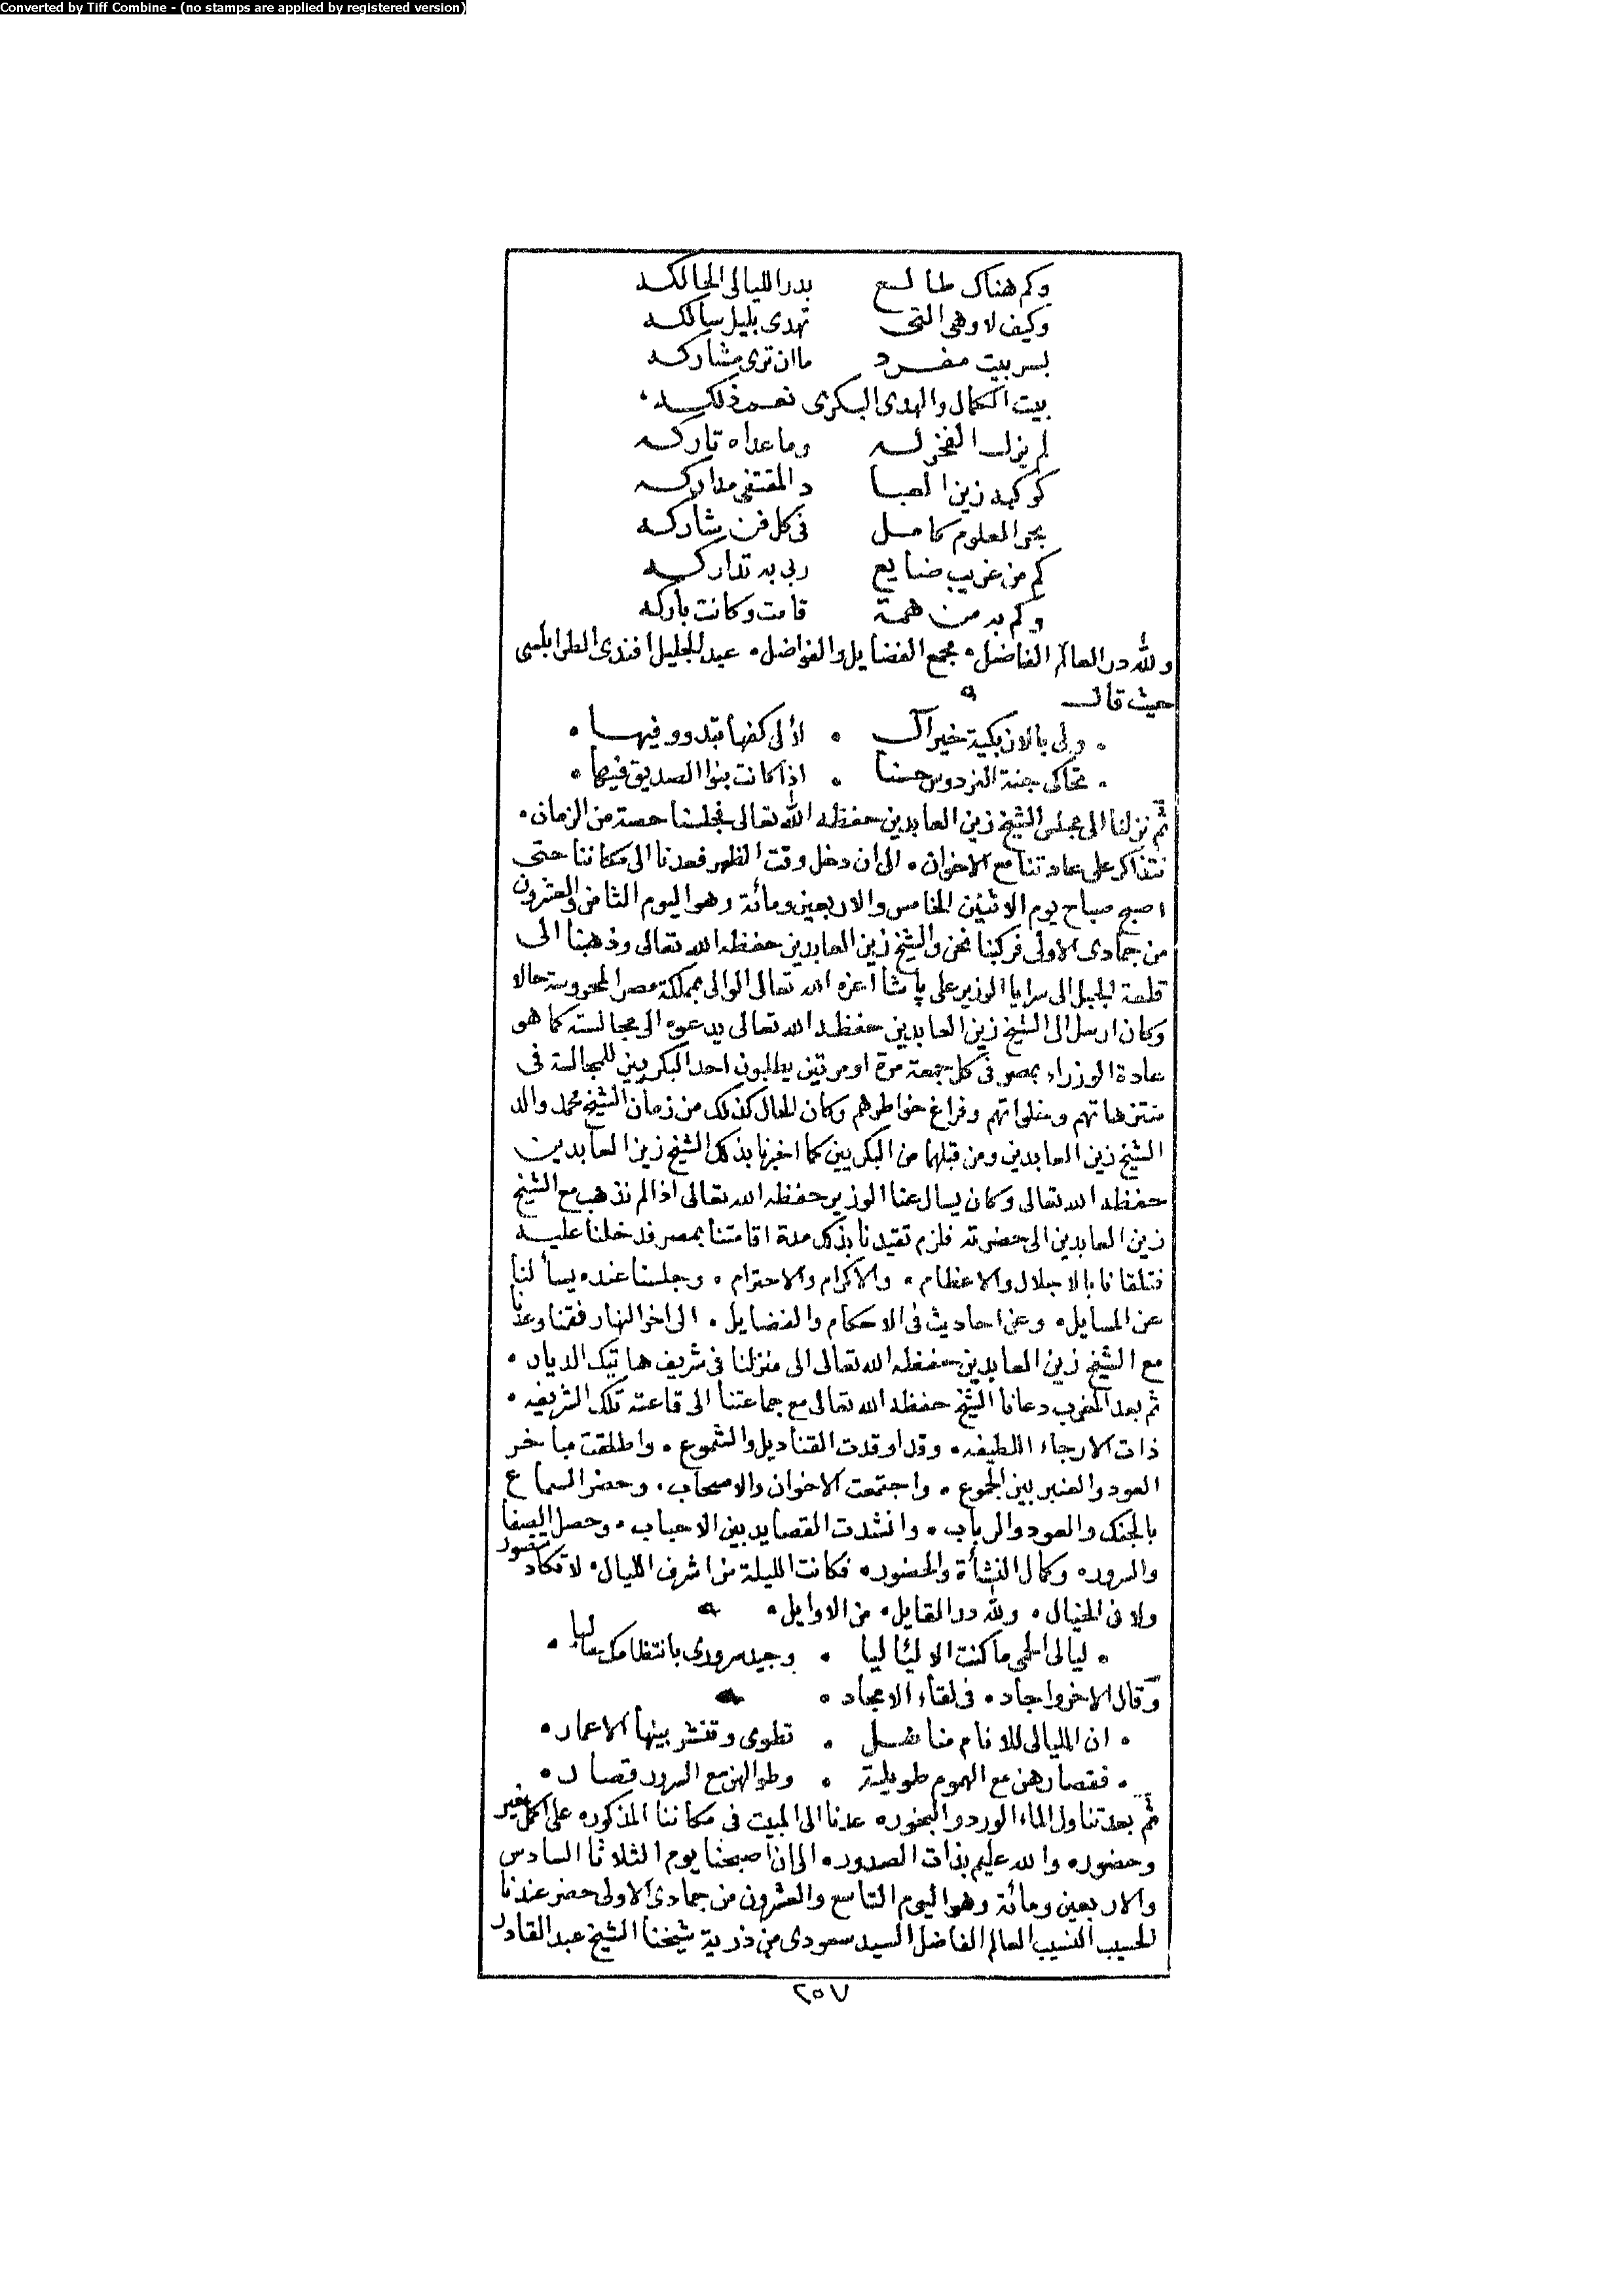 Converted by Tiff Combine - (no stamps are applied by registered version)
وكم هناك طالع بدر الليالى الحالكه
وكيف لا وهى التى تهدى بليل سالكه
بسر بيت مفرد ما ان ترى مشاركه
بيت الكمال والهدى البكرى نعم ذلكه
لم يزل الفخر له وما عداه تاركه
كوكبه زين العبا د المقتفى مداركه
بحر العلوم كامل فى كل فن شاركه
كم من غريب ضايع ربى به تداركه
وكم به من همة قامت وكانت باركه
ولله در العالم الفاضل ٠ مجمع الفضايل والفواضل ٠ عبد الجليل افندى الطرابلسى
حيث قال
٠ ولى بالازبكية خير آل ٠ لأ لى كفها تبدو وفيها ٠
٠ تحاكى جنة الفردوس حسنا ٠ اذا كانت بنوا الصديق فيها ٠
ثم نزلنا الى مجلس الشيخ زين العابدين حفظه الله تعالى فجلسنا حصة من الزمان ٠
نتذاكر على عادتنا مع الاخوان ٠ الى ان دخل وقت الظهر فعدنا الى مكاننا حتى
اصبح صباح يوم الاثنين الخامس والاربعين ومائة وهو اليوم الثامن والعشرون
من جمادى الاولى فركبنا نحن والشيخ زين العابدين حفظه الله تعالى وذهبنا الى
قلعة الجبل الى سرايا الوزير على پاشا اعزه الله تعالى الوالى بمملكة مصر المحروسة حالا
وكان ارسل الى الشيخ زين العابدين حفظه الله تعالى يدعوه الى مجالسته كما هو
عادة الوزراء بمصر فى كل جمعة مرة او مرتين يطلبون احد البكريين للمجالسة فى
منتزهاتهم وخلواتهم وفراغ خواطرهم وكان الحال كذلك من زمان الشيخ محمد والد
الشيخ زين العابدين ومن قبلهما من البكريين كما اخبرنا بذلك الشيخ زين العابدين
حفظه الله تعالى وكان يسال عنا الوزير حفظه الله تعالى اذا لم نذهب مع الشيخ
زين العابدين الى حضرته فلزم تقيدنا بذلك مدة اقامتنا بمصر فدخلنا عليه
فتلقانا بالاجلال والاعظام ٠ والاكرام والاحترام ٠ وجلسنا عنده يسألنا
عن المسايل ٠ وعن احاديث فى الاحكام والفضايل ٠ الى اخر النهار فقمنا وعدنا
مع الشيخ زين العابدين حفظه الله تعالى الى منزلنا فى شريف هاتيك الديار ٠
ثم بعد المغرب دعانا الشيخ حفظه الله تعالى مع جماعتنا الى قاعته تلك الشريفه ٠
ذات الارجاء اللطيفه ٠ وقد اوقدت القناديل والشموع ٠ واطلقت مباخر
العود والعنبر بين الجموع ٠ واجتمعت الاخوان والاصحاب ٠ وحضر السماع
بالجنك والعود والرباب ٠ وانشدت القصايد بين الاحباب ٠ وحصل الصفا
والسرور ٠ وكمال النشأة والحضور ٠ فكانت الليلة من اشرف الليال ٠ لا تكاد تتصور
ولا فى الخيال ٠ ولله در القايل ٠ من الاوايل ٠
٠ ليالى الحمى ما كنت الا لئاليا ٠ وجيد سرورى بانتظامك حاليا ٠
وقال الاخر واجاد ٠ فى لقاء الامجاد ٠
٠ ان الليالى للانام مناهل ٠ تطوى وتنشر بينها الاعمار ٠
٠ فقصارهن مع الهموم طويلة ٠ وطوالهن مع السرور قصار ٠
ثم بعد تناول الماء الورد والبخور ٠ عدنا الى المبيت فى مكاننا المذكور ٠ على اكمل
وحضور ٠ والله عليم بذات الصدور ٠ الى ان اصبحنا يوم الثلاثا السادس
والاربعين ومائة وهو اليوم التاسع والعشرون من جمادى الاولى حضر عندنا
الحسيب النسيب العالم الفاضل السيد سعودى من ذرية شيخنا الشيخ عبد القادر
٢٥٧